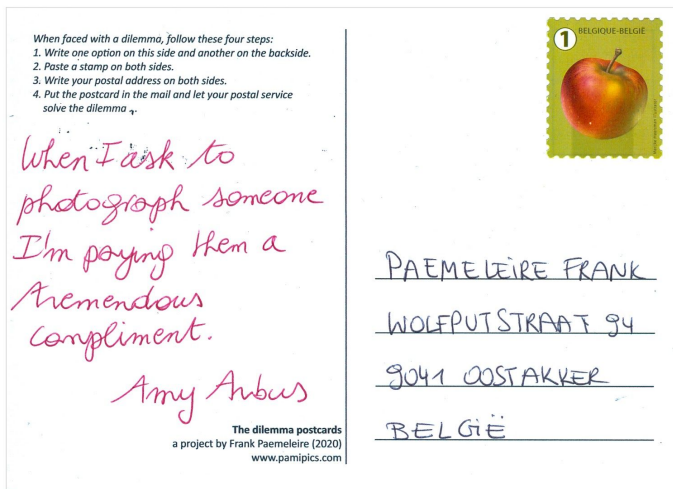 When faced with a dilemma, follow these four steps:
1. Write one option on this side and another on the backside.
2. Paste a stamp on both sides.
3. Write your postal address on both sides.
4. Put the postcard in the mail and let your postal service
solve the dilemma.
When I ask to
photograph someone
I'm paying them a
tremendous
compliment.
Amy Arbus
The dilemma postcards
a project by Frank Paemeleire (2020)
www.pamipics.com
1 BELGIQUE-BELGIË
PAEMELEIRE FRANK
WOLFPUTSTRAAT 94
9041 OOSTAKKER
BELGIË